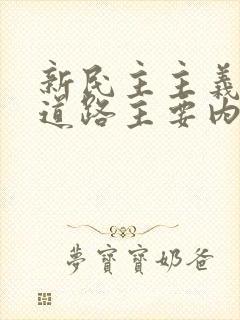 新民主主義
道路主要內
夢寶寶奶爸